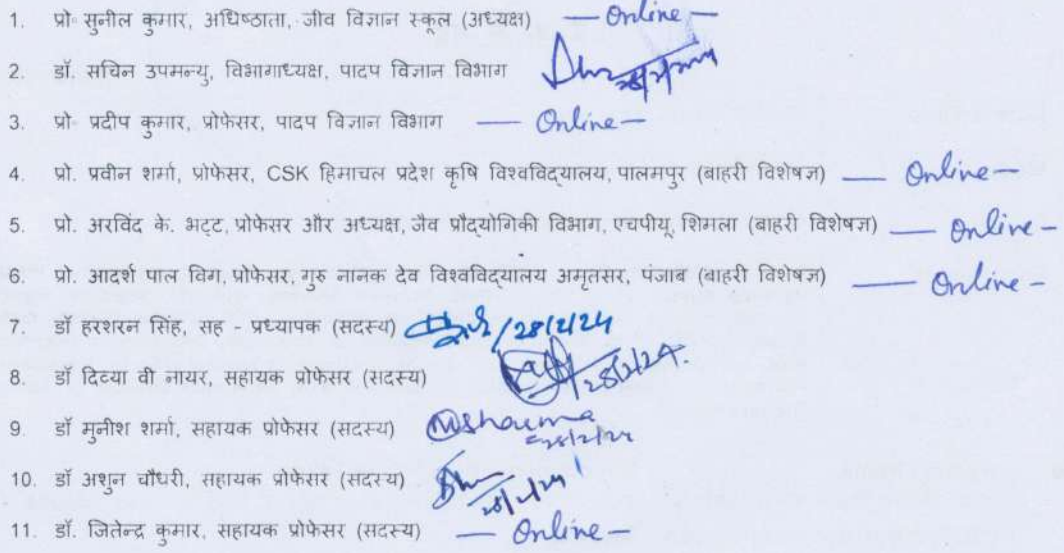 1. प्रो॰ सुनील कुमार, अधिष्ठाता, जीव विज्ञान स्कूल (अध्यक्ष) — Online —
2. डॉ. सचिन उपमन्यु, विभागाध्यक्ष, पादप विज्ञान विभाग
3. प्रो॰ प्रदीप कुमार, प्रोफेसर, पादप विज्ञान विभाग — Online —
4. प्रो. प्रवीन शर्मा, प्रोफेसर, CSK हिमाचल प्रदेश कृषि विश्वविद्यालय, पालमपुर (बाहरी विशेषज्ञ) — Online —
5. प्रो. अरविंद के. भट्ट, प्रोफेसर और अध्यक्ष, जैव प्रौद्योगिकी विभाग, एचपीयू, शिमला (बाहरी विशेषज्ञ) — Online —
6. प्रो. आदर्श पाल विग, प्रोफेसर, गुरु नानक देव विश्वविद्यालय अमृतसर, पंजाब (बाहरी विशेषज्ञ) — Online —
7. डॉ हरशरन सिंह, सह - प्रध्यापक (सदस्य) /28/2/24
8. डॉ दिव्या वी नायर, सहायक प्रोफेसर (सदस्य) 28/2/24.
9. डॉ मुनीश शर्मा, सहायक प्रोफेसर (सदस्य) MSharma 28/2/24
10. डॉ अशुन चौधरी, सहायक प्रोफेसर (सदस्य)
11. डॉ. जितेन्द्र कुमार, सहायक प्रोफेसर (सदस्य) — Online —